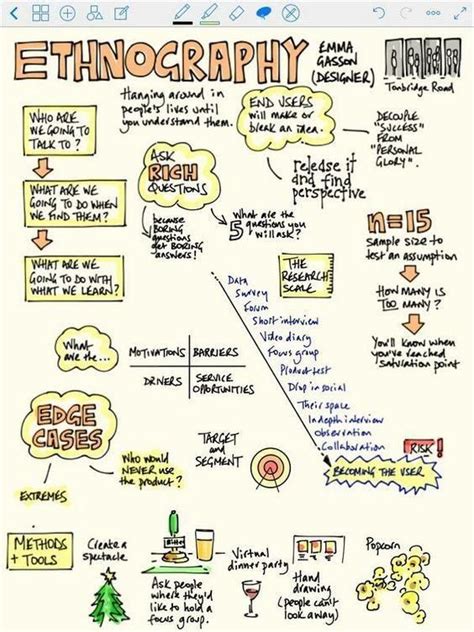 ETHNOGRAPHY
EMMA
GASSON
(DESIGNER)
Tonbridge Road
Hanging around in
people's lives until
you understand them.
END USERS
will make or
break an idea.
DECOUPLE
"SUCCESS"
FROM
"PERSONAL
GLORY".
WHO ARE
WE GOING TO
TALK TO?
WHAT ARE WE
GOING TO DO WHEN
WE FIND THEM?
WHAT ARE WE
GOING TO DO WITH
WHAT WE LEARN?
ASK
RICH
QUESTIONS
because
BORING
questions
get BORING
answers!
What are the
5 questions you
will ask?
release it
and find
perspective
n=15
SAMPLE SIZE to
test an assumption
HOW MANY IS
TOO MANY?
You'll know when
you've reached
saturation point
THE
RESEARCH
SCALE
Data
Survey
Forum
Short interview
Video diary
Focus group
Product test
Drop in social
Their space
Indepth interview
Observation
Collaboration
RISK!
BECOMING THE USER
What
are the...
MOTIVATIONS
BARRIERS
DRIVERS
SERVICE
OPPORTUNITIES
EDGE
CASES
EXTREMES
Who would
NEVER use
the product?
TARGET
and
SEGMENT
METHODS
+ TOOLS
Create a
spectacle
Ask people
where they'd
like to hold a
focus group.
Virtual
dinner party
Hand
drawing
(people can't
look away)
Popcorn